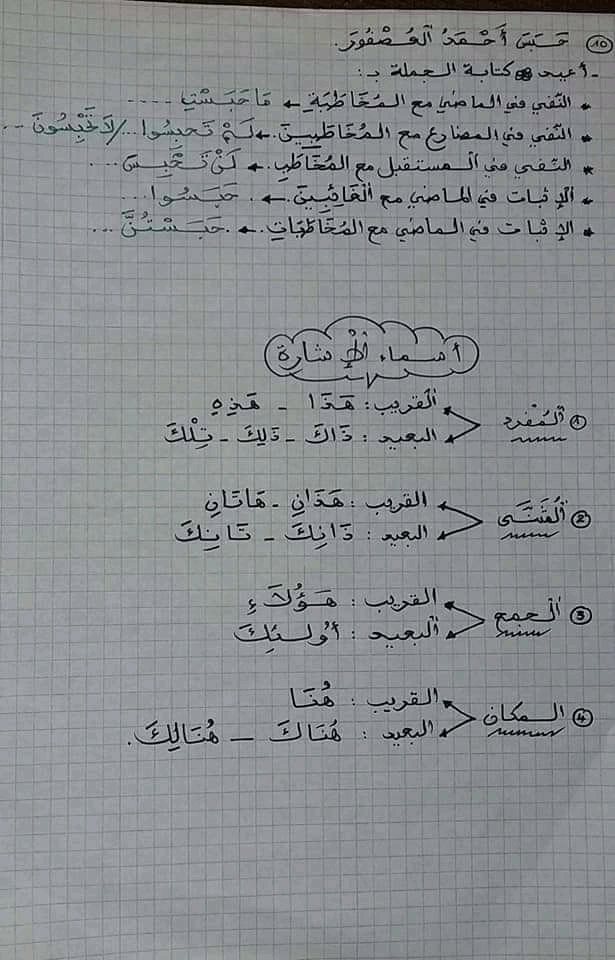 10) حَبَسَ أَحْمَدُ الْعُصْفُورَ.
- أعيد كتابة الجملة بـ:
* النفي في الماضي مع المُخَاطَبَةِ ← مَا حَبَسْتِ ....
* النفي في المضارع مع المُخَاطَبِينَ ← لَمْ تَحبِسُوا.../لَا تَحْبِسُونَ ...
* النفي في المستقبل مع المُخَاطَبِ ← لَنْ تَحْبِسَ ...
* الإثبات في الماضي مع الْغَائِبِينَ ← حَبَسُوا...
* الإثبات في الماضي مع المُخَاطَبَاتِ ← حَبَسْتُنَّ ...
أسماء الإشارة
1) الْمُفْرَد
القريب: هَذَا - هَذِهِ
البعيد: ذَاكَ - ذَلِكَ - تِلْكَ
2) الْمُثَنَّى
القريب: هَذَانِ - هَاتَانِ
البعيد: ذَانِكَ - تَانِكَ
3) الْجمع
القريب: هَؤُلَاءِ
البعيد: أُولَئِكَ
4) المكان
القريب: هُنَا
البعيد: هُنَاكَ - هُنَالِكَ.